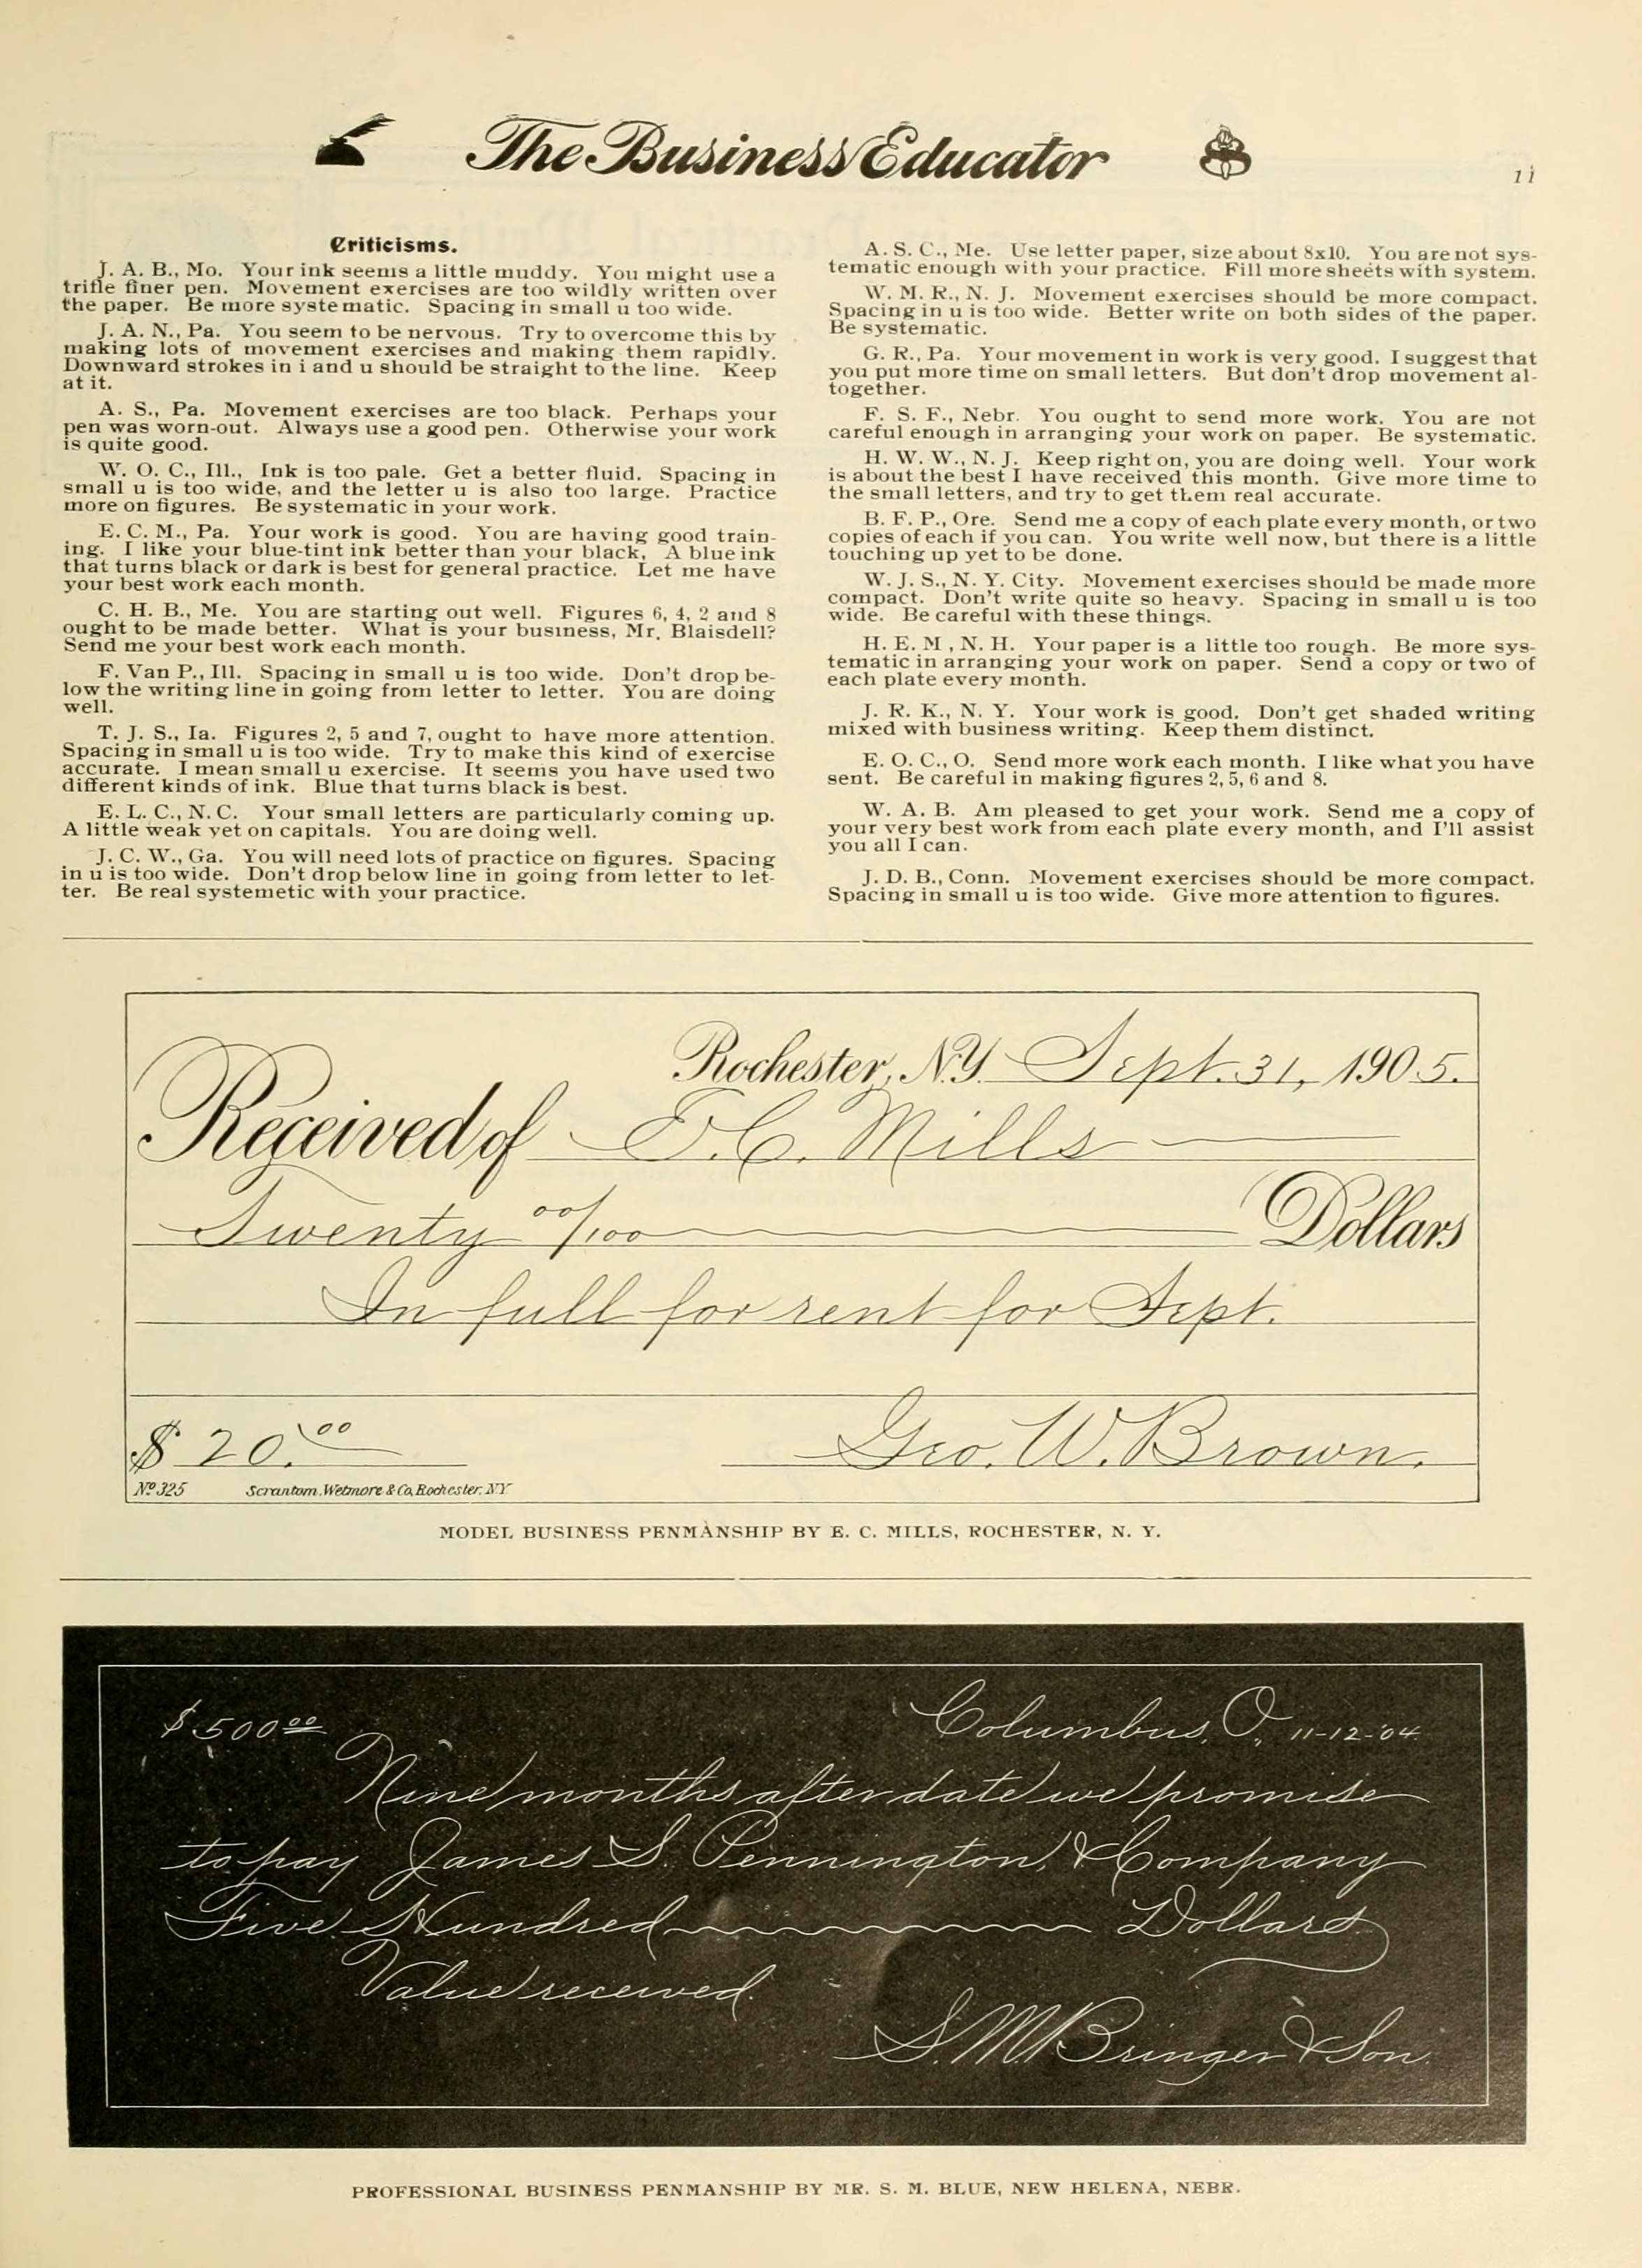 The Business Educator
11
Criticisms.
J. A. B., Mo. Your ink seems a little muddy. You might use a
trifle finer pen. Movement exercises are too wildly written over
the paper. Be more systematic. Spacing in small u too wide.
J. A. N., Pa. You seem to be nervous. Try to overcome this by
making lots of movement exercises and making them rapidly.
Downward strokes in i and u should be straight to the line. Keep
at it.
A. S., Pa. Movement exercises are too black. Perhaps your
pen was worn-out. Always use a good pen. Otherwise your work
is quite good.
W. O. C., Ill., Ink is too pale. Get a better fluid. Spacing in
small u is too wide, and the letter u is also too large. Practice
more on figures. Be systematic in your work.
E. C. M., Pa. Your work is good. You are having good train-
ing. I like your blue-tint ink better than your black, A blue ink
that turns black or dark is best for general practice. Let me have
your best work each month.
C. H. B., Me. You are starting out well. Figures 6, 4, 2 and 8
ought to be made better. What is your business, Mr. Blaisdell?
Send me your best work each month.
F. Van P., Ill. Spacing in small u is too wide. Don't drop be-
low the writing line in going from letter to letter. You are doing
well.
T. J. S., Ia. Figures 2, 5 and 7, ought to have more attention.
Spacing in small u is too wide. Try to make this kind of exercise
accurate. I mean small u exercise. It seems you have used two
different kinds of ink. Blue that turns black is best.
E. L. C., N. C. Your small letters are particularly coming up.
A little weak yet on capitals. You are doing well.
J. C. W., Ga. You will need lots of practice on figures. Spacing
in u is too wide. Don't drop below line in going from letter to let-
ter. Be real systemetic with your practice.
A. S. C., Me. Use letter paper, size about 8x10. You are not sys-
tematic enough with your practice. Fill more sheets with system.
W. M. R., N. J. Movement exercises should be more compact.
Spacing in u is too wide. Better write on both sides of the paper.
Be systematic.
G. R., Pa. Your movement in work is very good. I suggest that
you put more time on small letters. But don't drop movement al-
together.
F. S. F., Nebr. You ought to send more work. You are not
careful enough in arranging your work on paper. Be systematic.
H. W. W., N. J. Keep right on, you are doing well. Your work
is about the best I have received this month. Give more time to
the small letters, and try to get them real accurate.
B. F. P., Ore. Send me a copy of each plate every month, or two
copies of each if you can. You write well now, but there is a little
touching up yet to be done.
W. J. S., N. Y. City. Movement exercises should be made more
compact. Don't write quite so heavy. Spacing in small u is too
wide. Be careful with these things.
H. E. M , N. H. Your paper is a little too rough. Be more sys-
tematic in arranging your work on paper. Send a copy or two of
each plate every month.
J. R. K., N. Y. Your work is good. Don't get shaded writing
mixed with business writing. Keep them distinct.
E. O. C., O. Send more work each month. I like what you have
sent. Be careful in making figures 2, 5, 6 and 8.
W. A. B. Am pleased to get your work. Send me a copy of
your very best work from each plate every month, and I'll assist
you all I can.
J. D. B., Conn. Movement exercises should be more compact.
Spacing in small u is too wide. Give more attention to figures.
Rochester, N.Y. Sept. 31, 1905.
Received of E. C. Mills
Twenty 00/100 Dollars
In full for rent for Sept.
$ 20.00 Geo. W. Brown.
No 325 Scrantom, Wetmore & Co, Rochester, N.Y.
MODEL BUSINESS PENMANSHIP BY E. C. MILLS, ROCHESTER, N. Y.
$500.00 Columbus, O., 11-12-'04.
Nine months after date we promise
to pay James S. Pennington, & Company
Five Hundred Dollars
Value received.
S. M. Bringer & Son.
PROFESSIONAL BUSINESS PENMANSHIP BY MR. S. M. BLUE, NEW HELENA, NEBR.